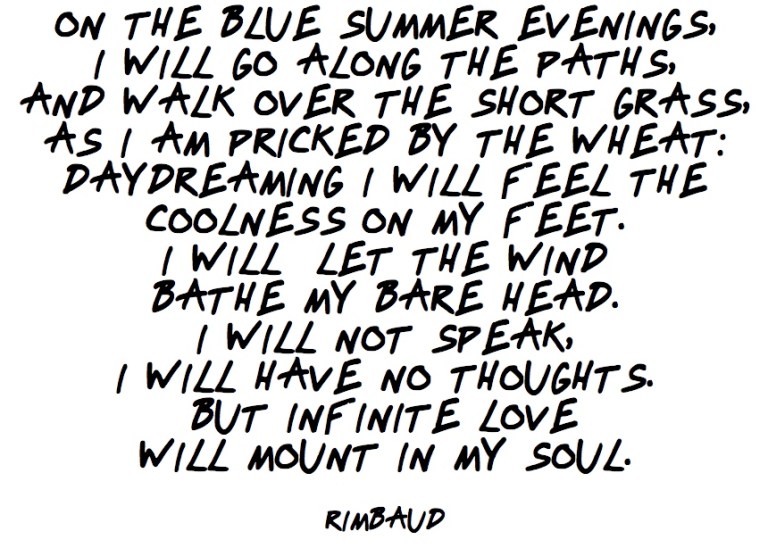 ON THE BLUE SUMMER EVENINGS,
I WILL GO ALONG THE PATHS,
AND WALK OVER THE SHORT GRASS,
AS I AM PRICKED BY THE WHEAT:
DAYDREAMING I WILL FEEL THE
COOLNESS ON MY FEET.
I WILL LET THE WIND
BATHE MY BARE HEAD.
I WILL NOT SPEAK,
I WILL HAVE NO THOUGHTS.
BUT INFINITE LOVE
WILL MOUNT IN MY SOUL.
RIMBAUD